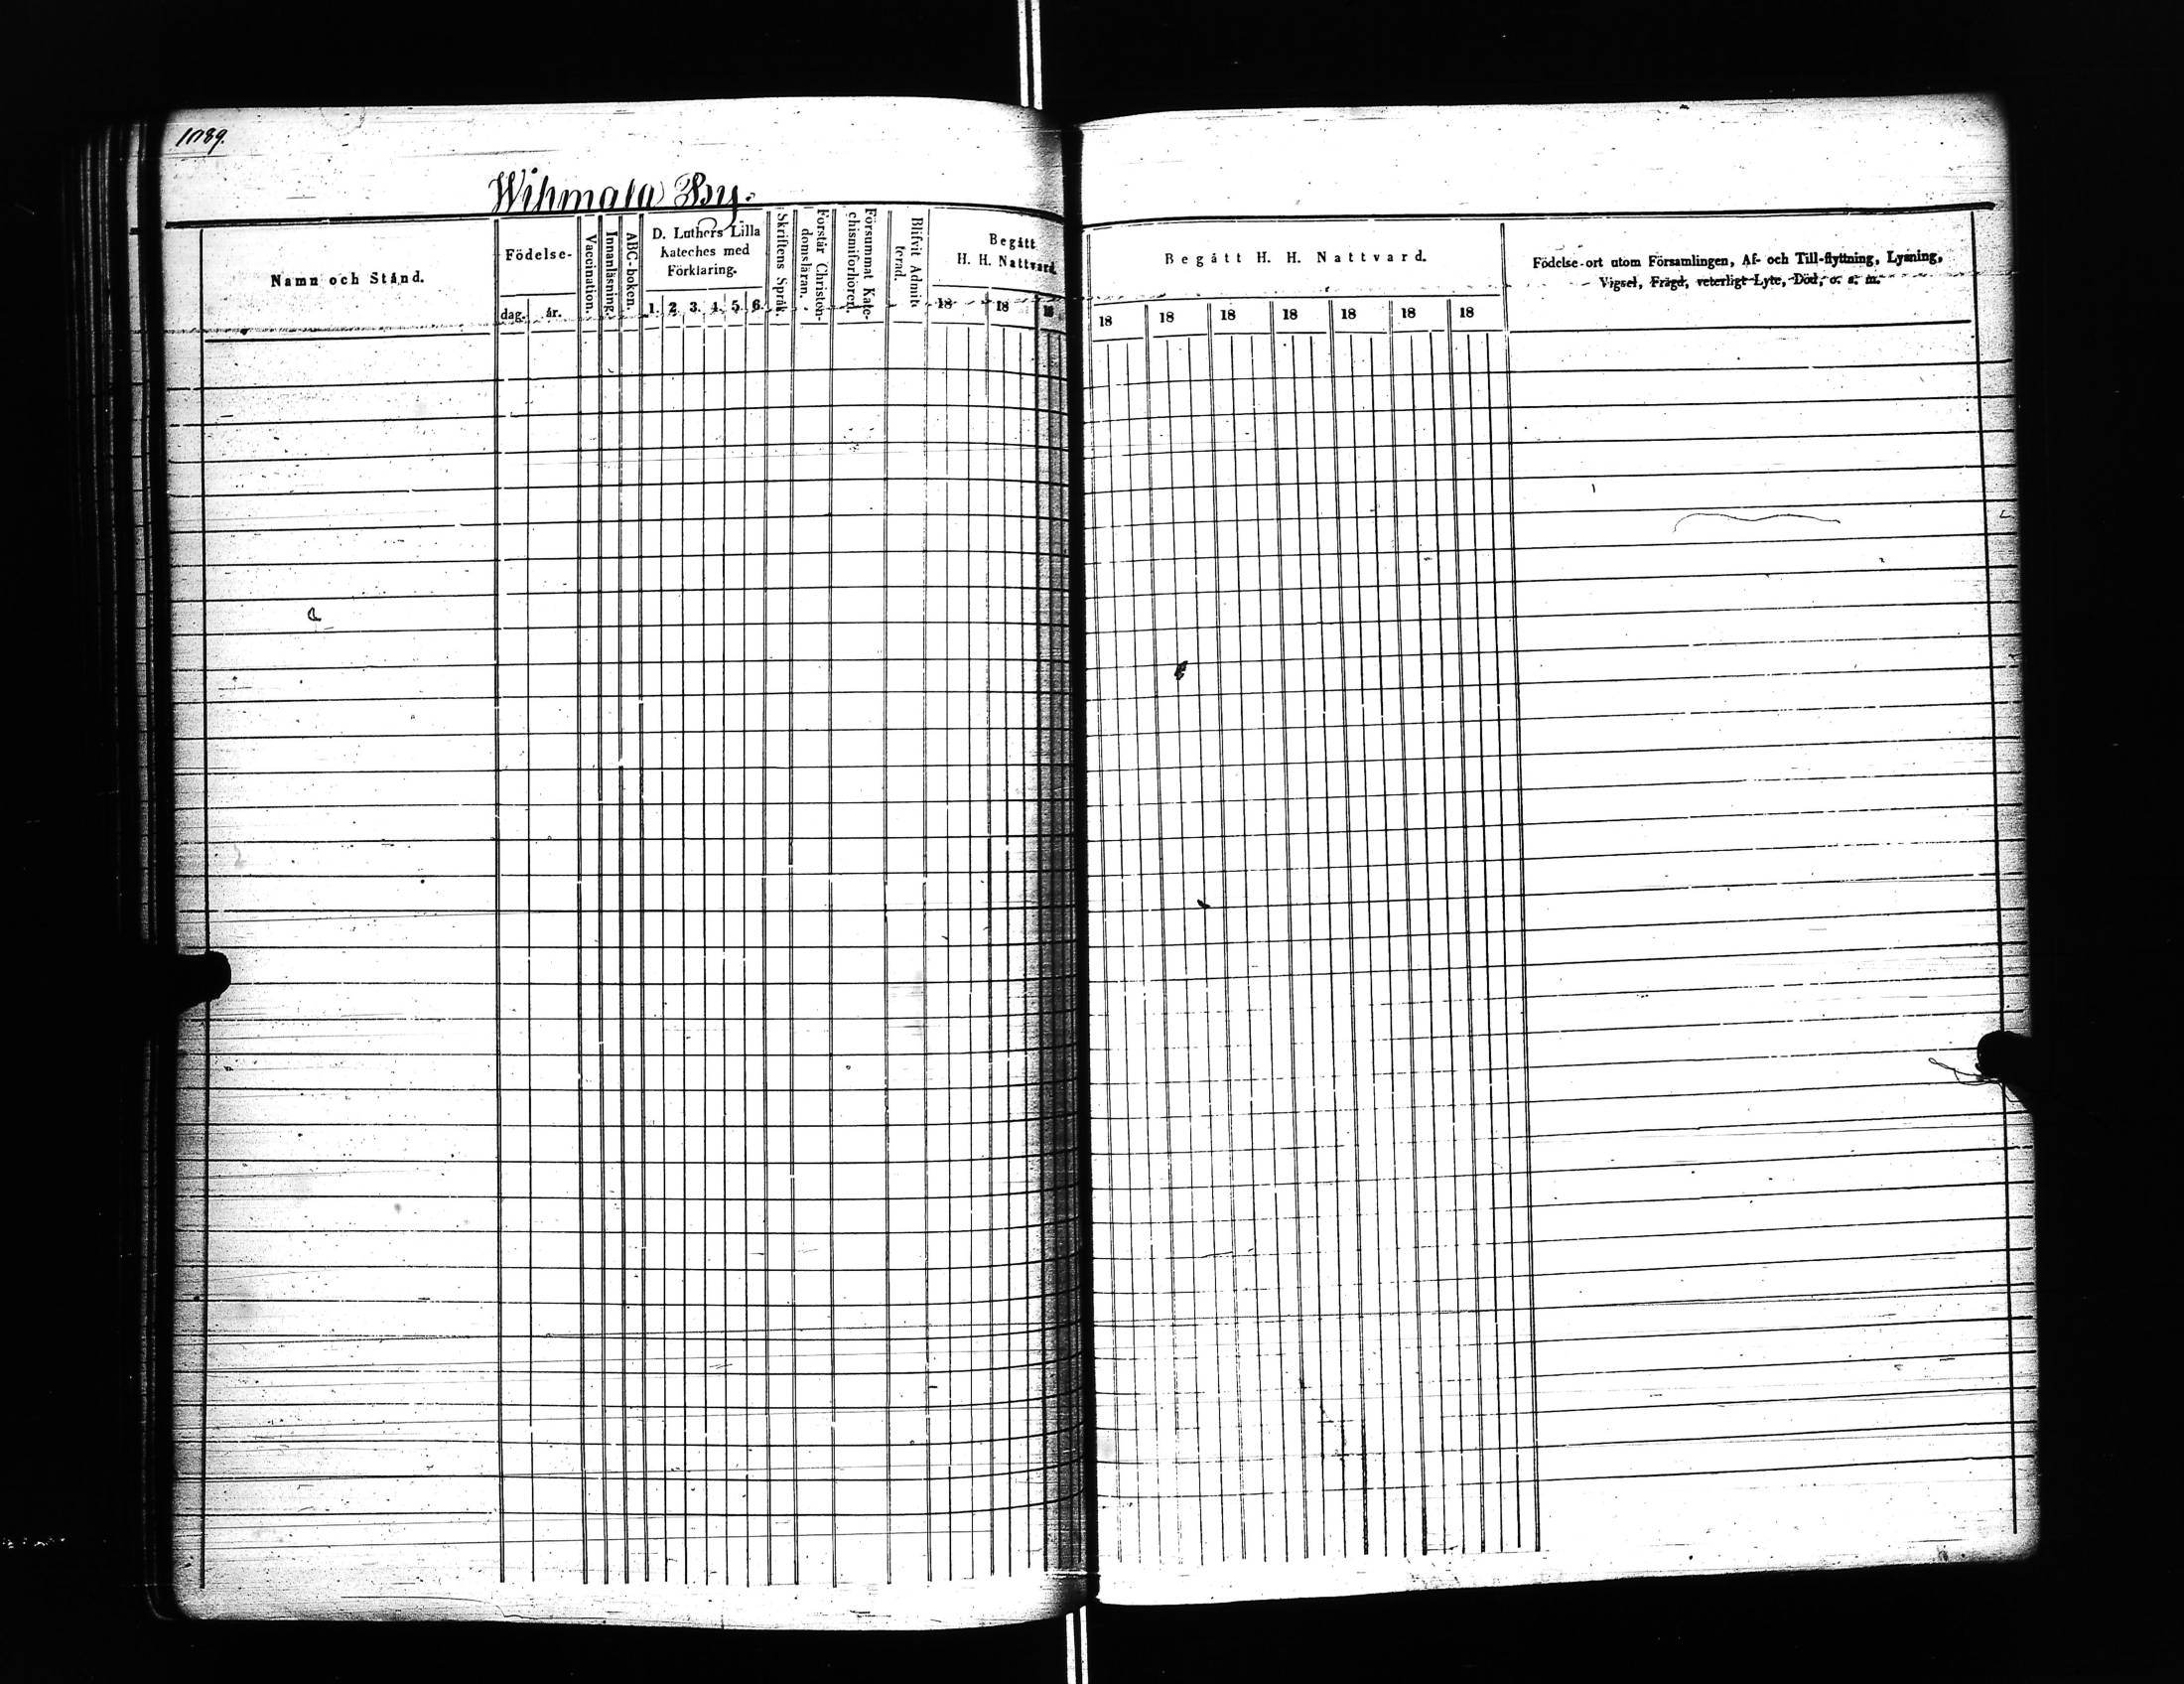 1089.
Wihmala By.
Namn och Stånd.
Födelse-
dag. år.
Vaccination.
Innanläsning.
ABC-boken.
D. Luthers Lilla
Kateches med
Förklaring.
1. 2. 3. 4. 5. 6.
Skriftens Språk.
Förstår Christen-
domsläran.
Försummat Kate-
chismiförhören.
Blifvit Admit-
terad.
Begått
H. H. Nattvard.
18 18 18
Begått H. H. Nattvard.
18 18 18 18 18 18 18
Födelse-ort utom Församlingen, Af- och Till-flyttning, Lysning,
Vigsel, Frägd, veterligt Lyte, Död, o. s. m.